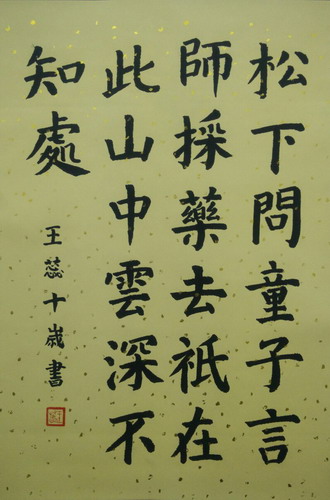 松下問童子言
師採藥去祇在
此山中雲深不
知處
王蕊十歲書